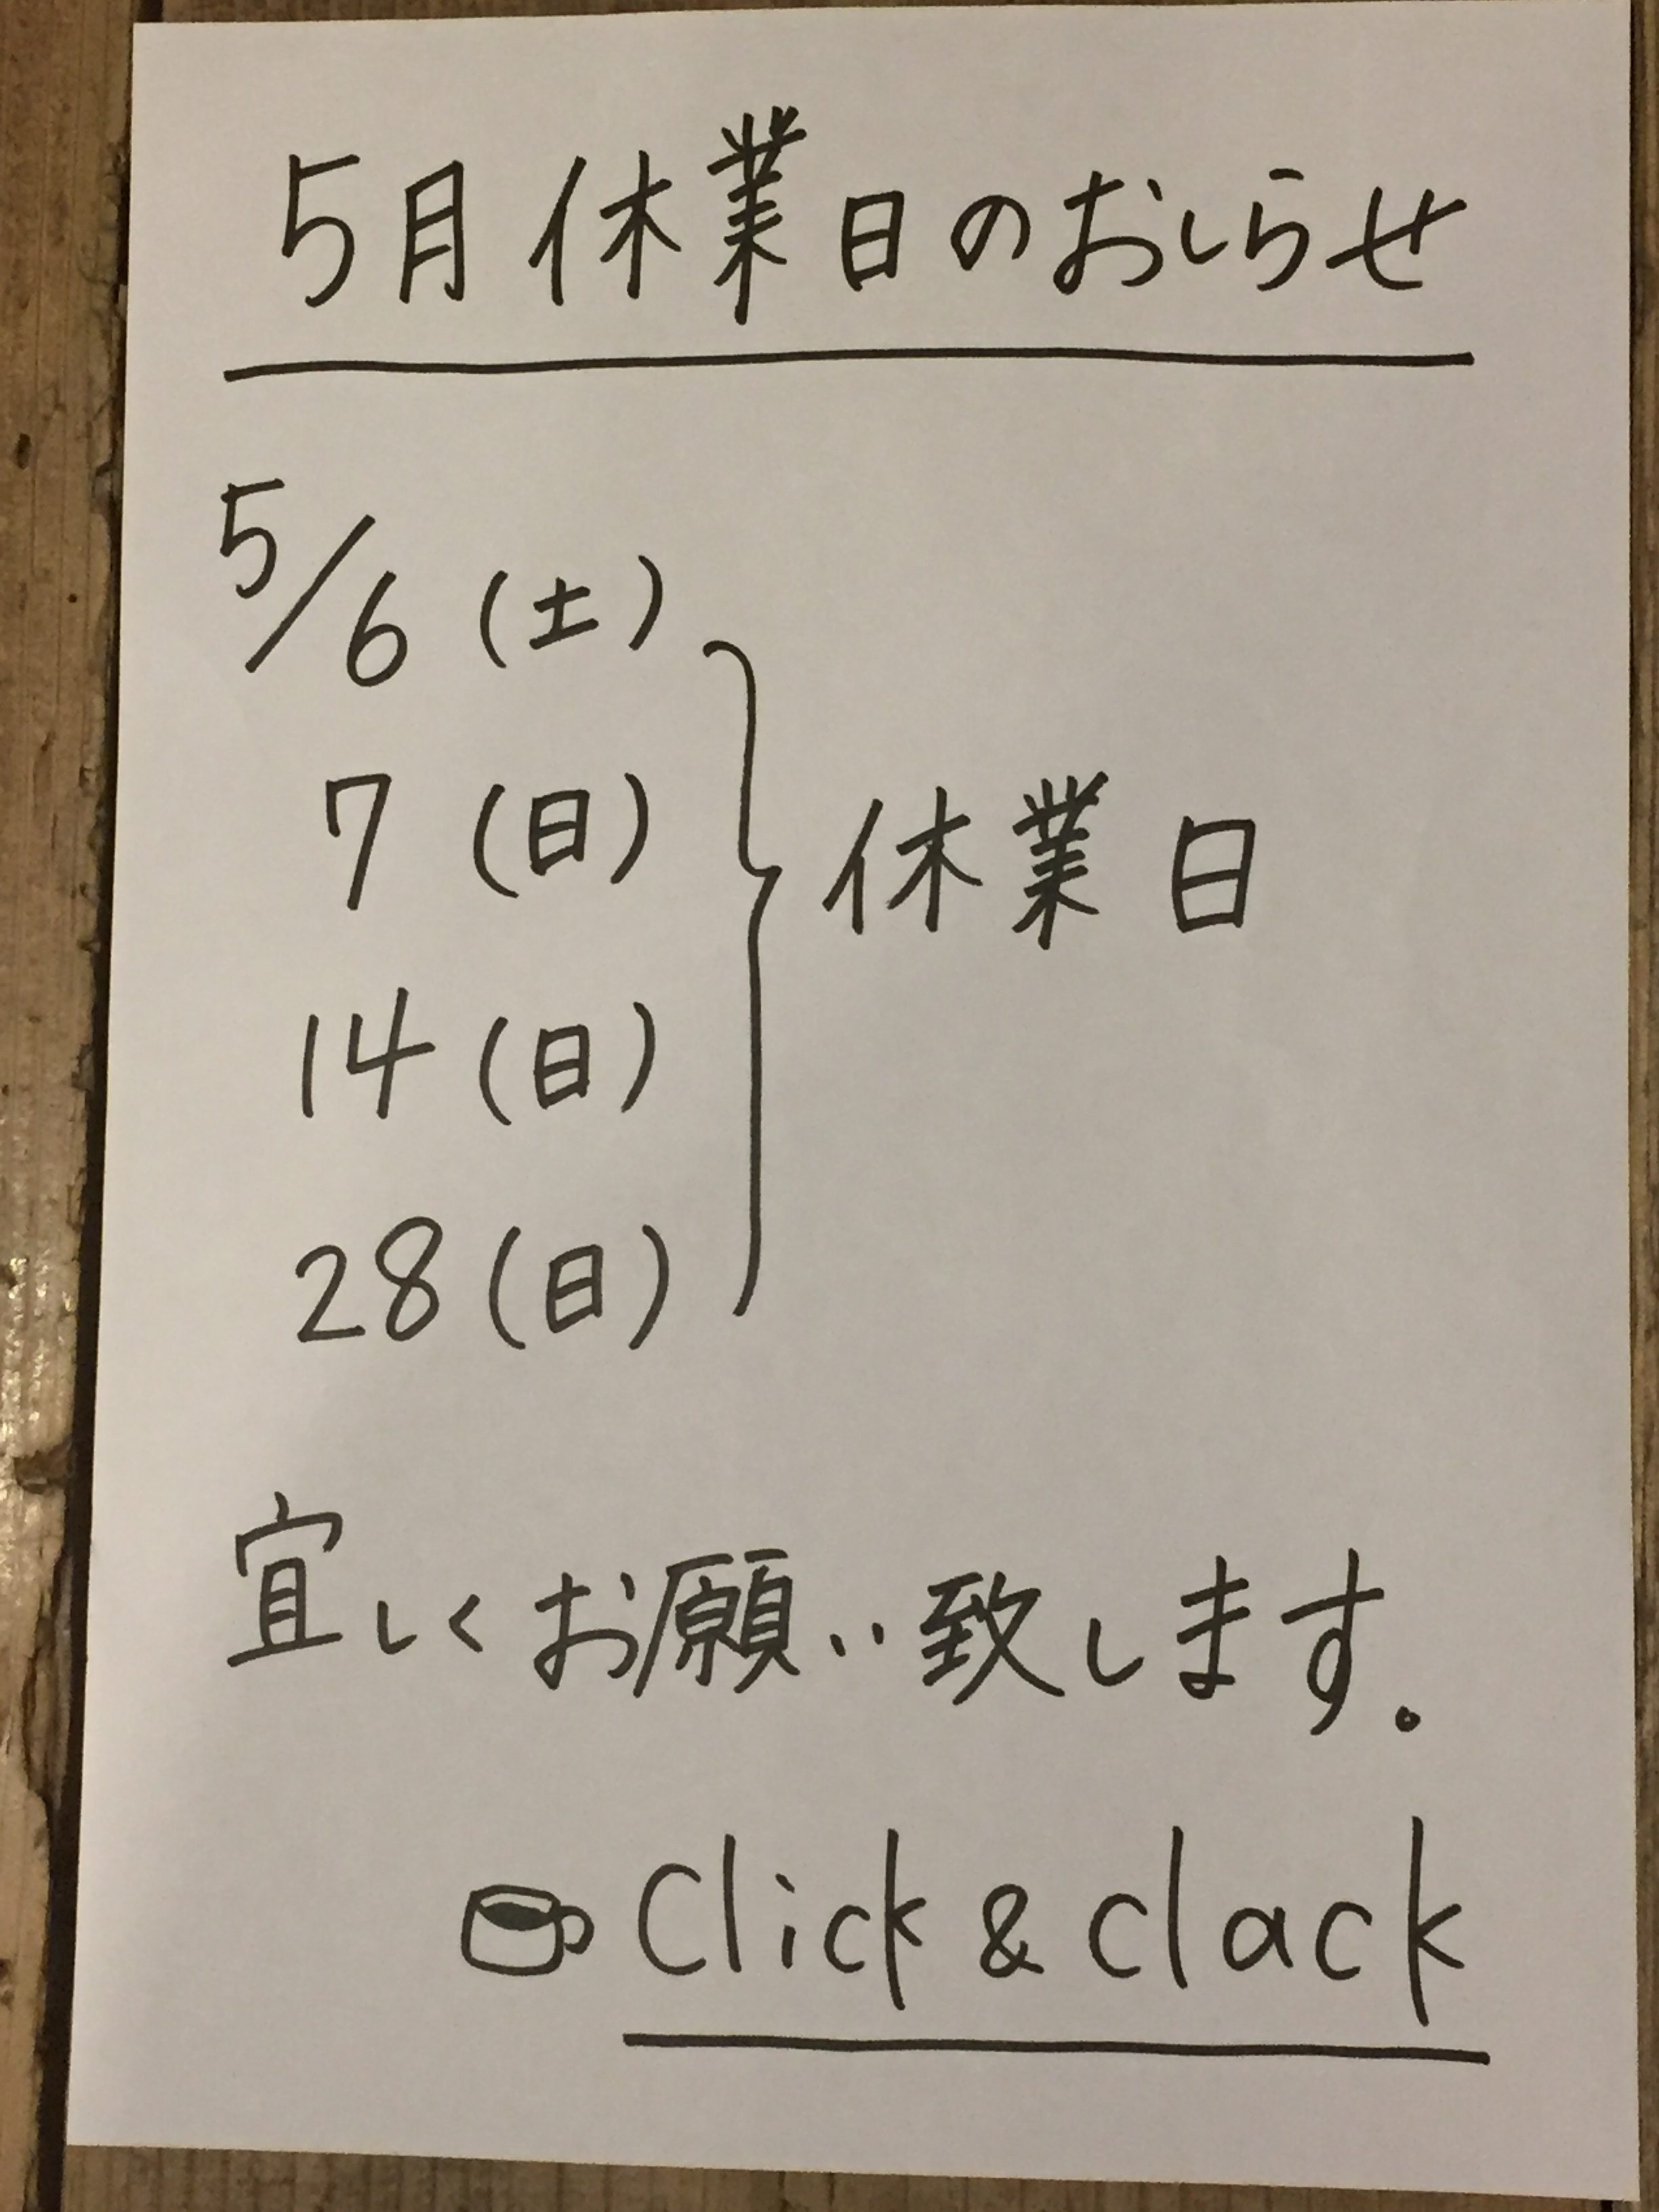 5月休業日のおしらせ
5/6(土)
7(日)
休業日
14(日)
28(日)
宜しくお願い致します。
Click & clack